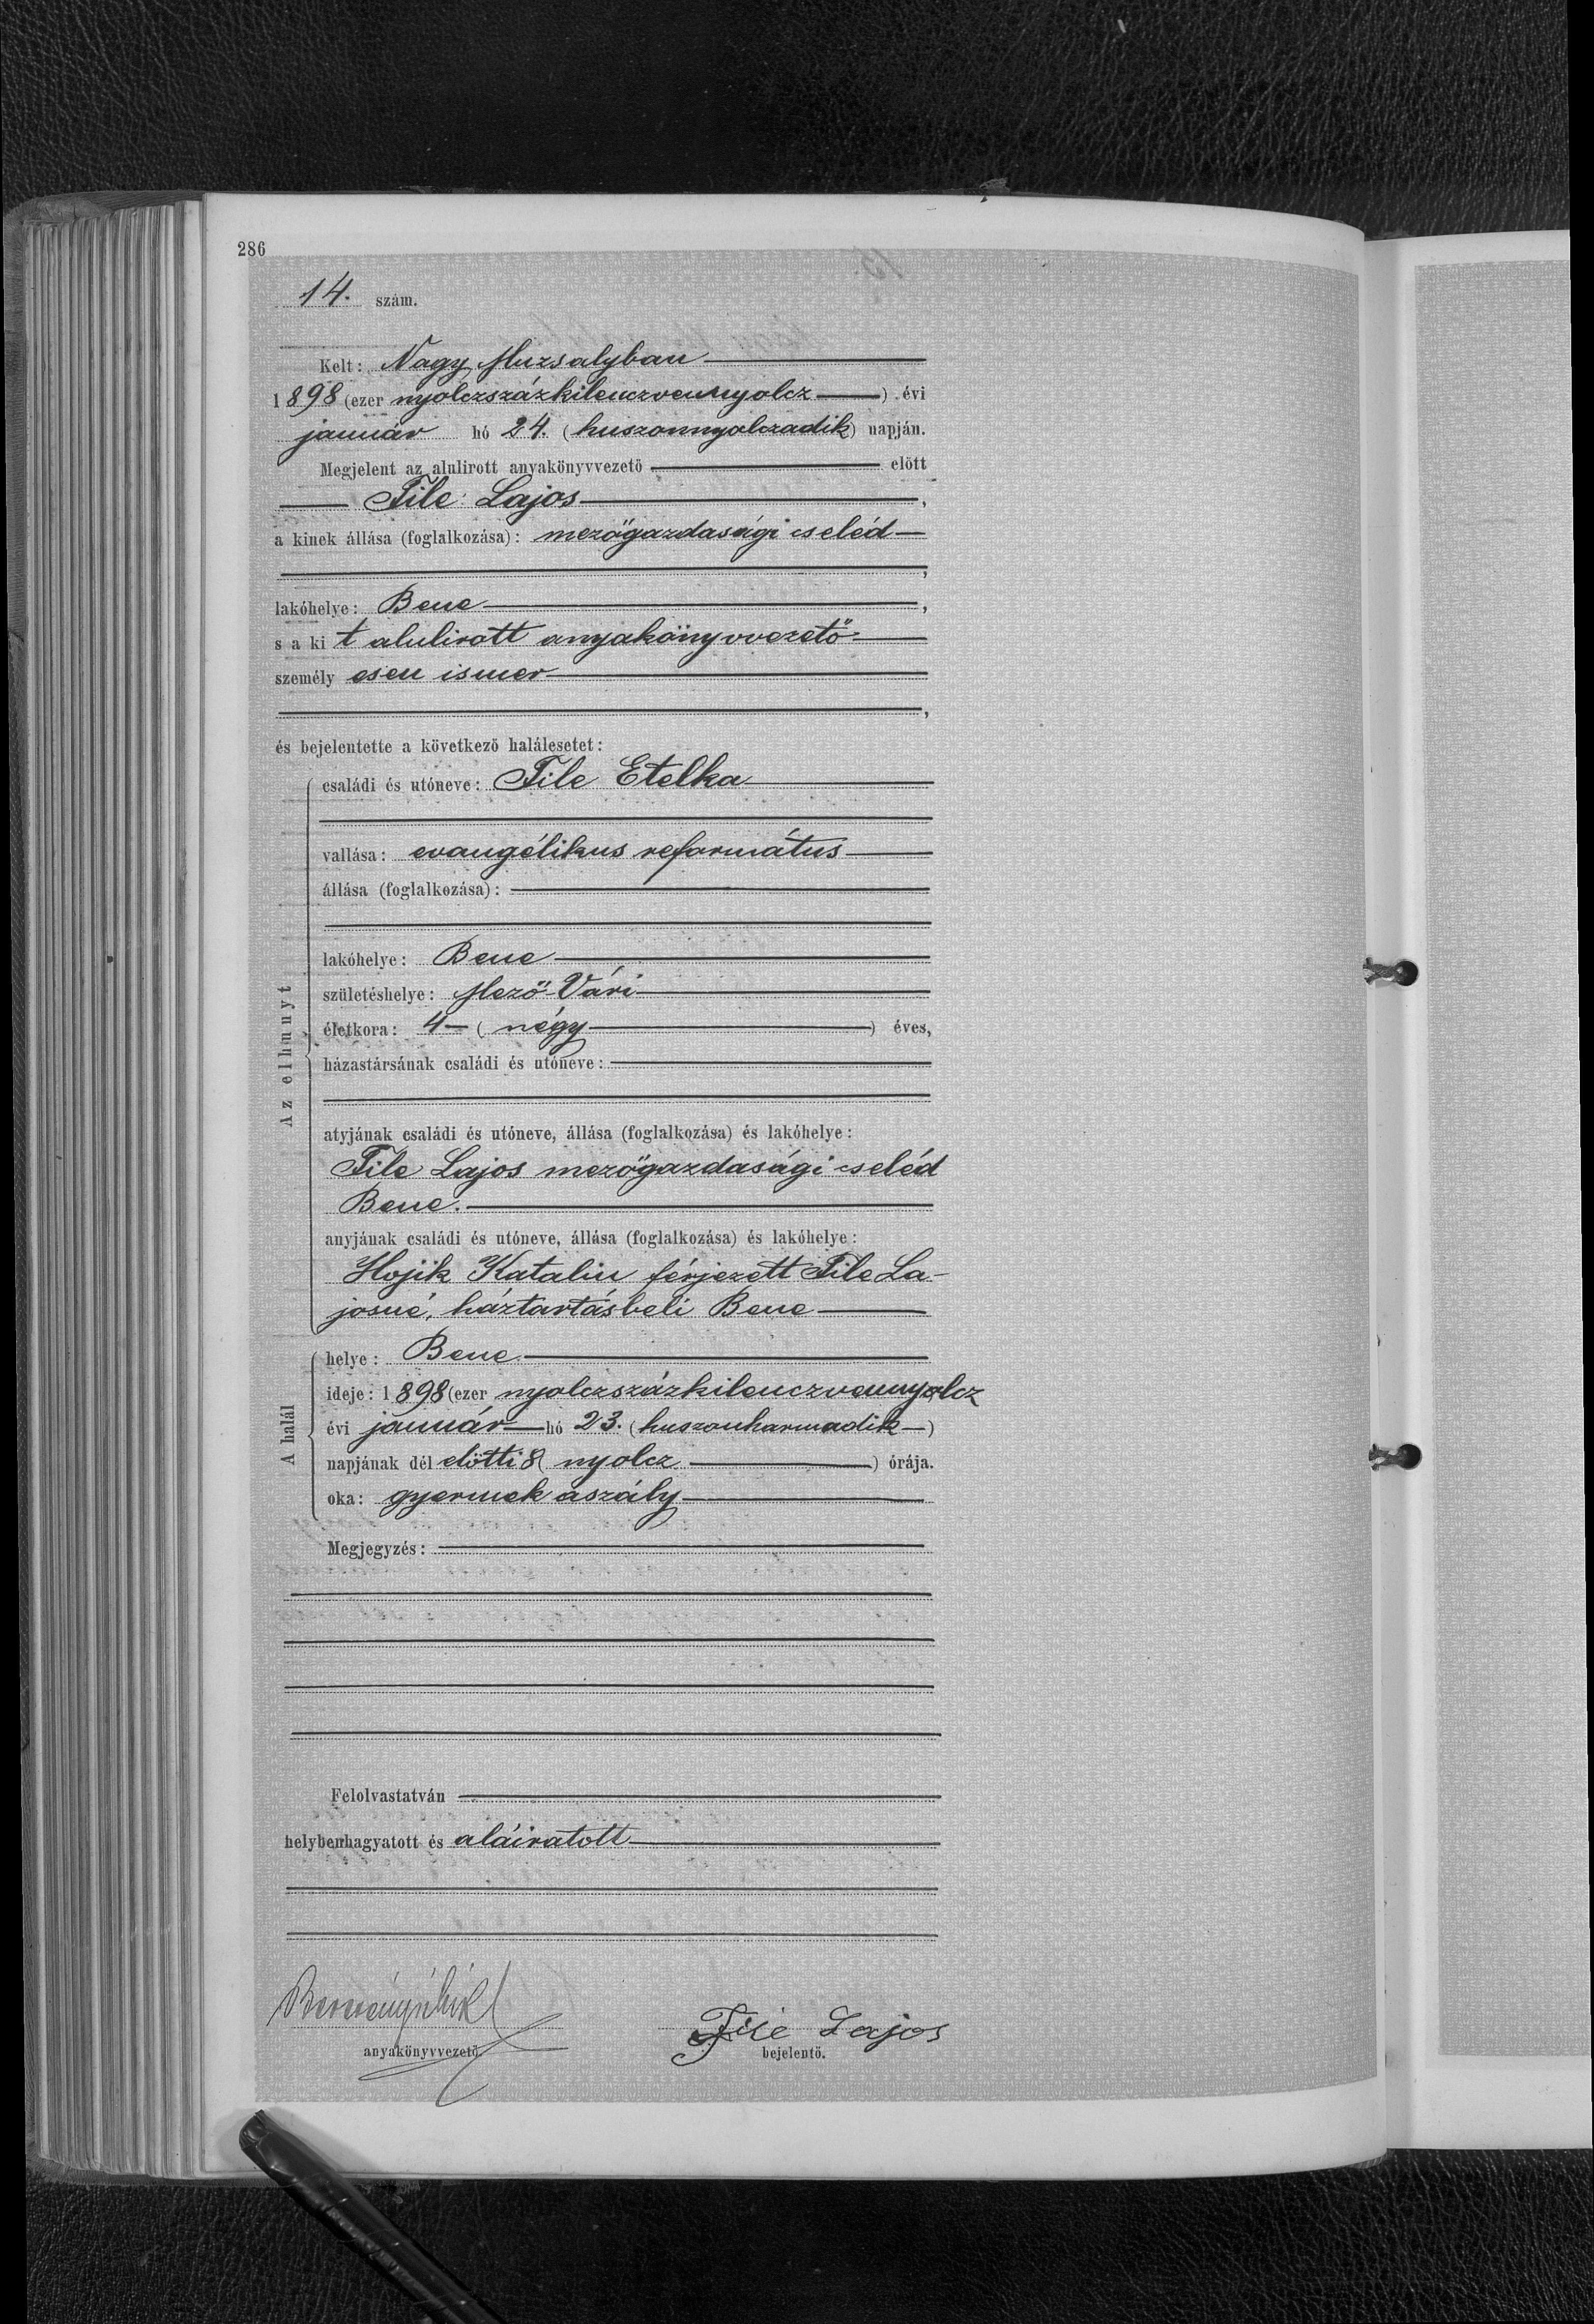 286
14. szám.
Kelt: Nagy Muzsalyban
1898 (ezer nyolczszázkilenczvennyolcz) évi
január hó 24. (huszonnyolczadik) napján.
Megjelent az alulirott anyakönyvvezető előtt
File Lajos,
a kinek állása (foglalkozása): mezőgazdasági cseléd
,
lakóhelye: Bene,
s a kit alulirott anyakönyvvezető
személyesen ismer
,
és bejelentette a következő halálesetet:
Az elhunyt
családi és utóneve: File Etelka
vallása: evangélikus református
állása (foglalkozása):
lakóhelye: Bene
születéshelye: Mező-Vári
életkora: 4 (négy) éves,
házastársának családi és utóneve:
atyjának családi és utóneve, állása (foglalkozása) és lakóhelye:
File Lajos mezőgazdasági cseléd
Bene.
anyjának családi és utóneve, állása (foglalkozása) és lakóhelye:
Hojik Katalin férjezett File La-
josné, háztartásbeli Bene
A halál
helye: Bene.
ideje: 1898 (ezer nyolczszázkilenczvennyolcz
évi január hó 23. (huszonharmadik)
napjának dél előtti 8 (nyolcz) órája.
oka: gyermek aszály
Megjegyzés:
Felolvastatván
helybenhagyatott és aláiratott
File Lajos
anyakönyvvezető.
bejelentő.